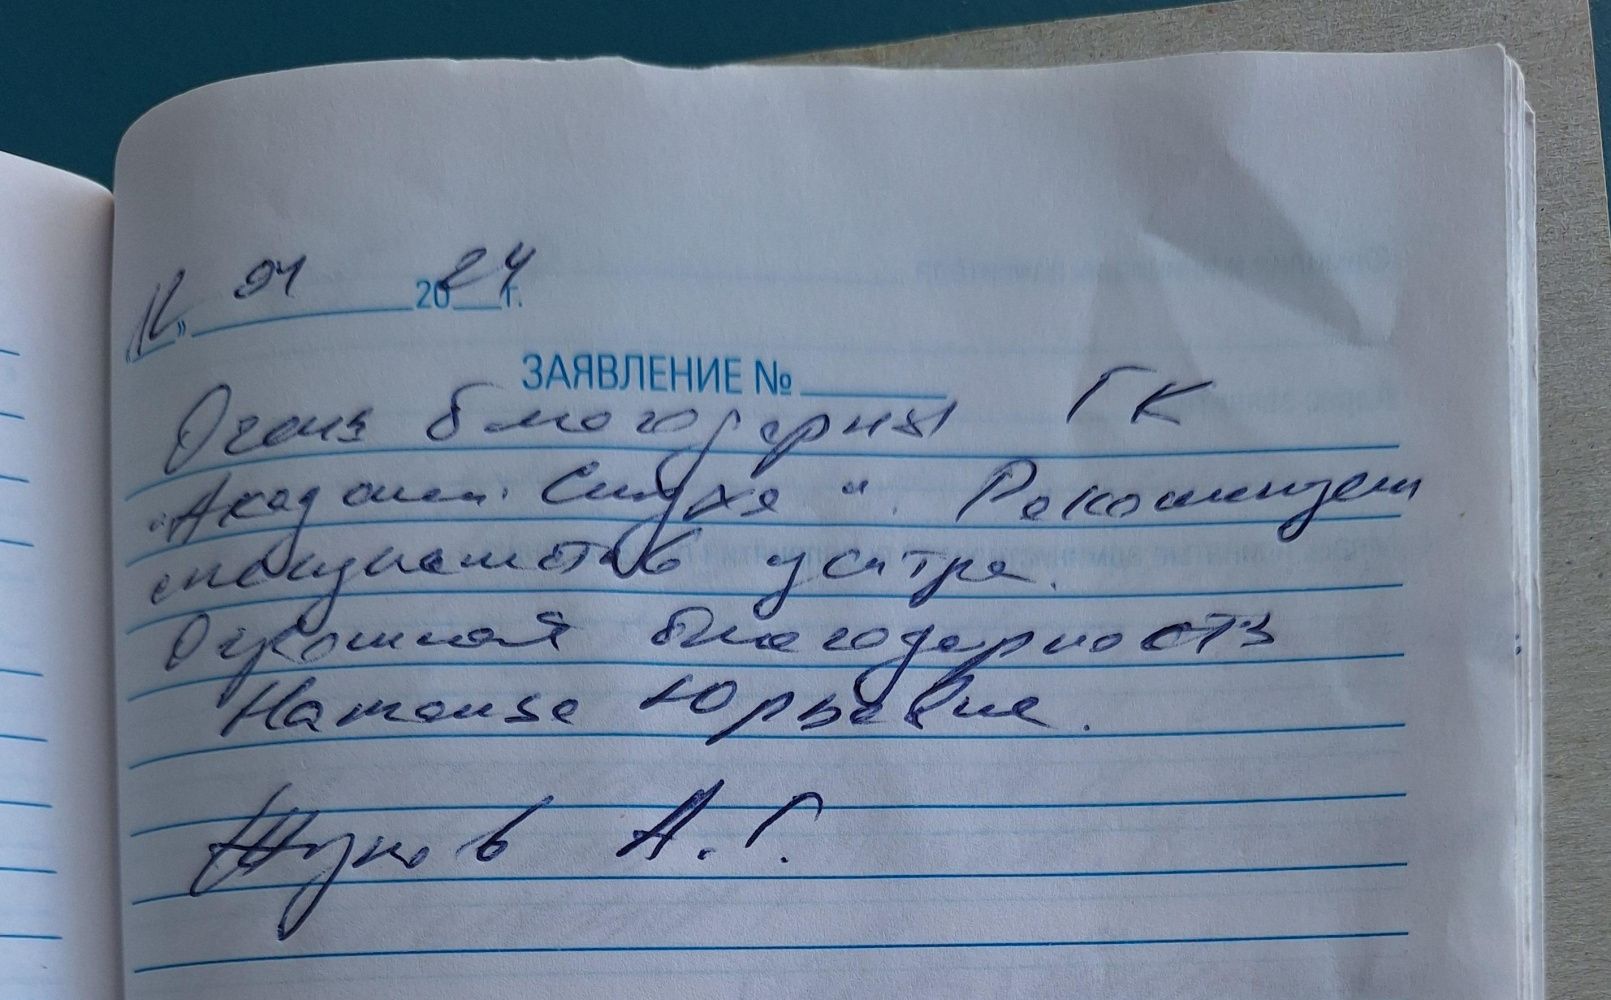 «12» 04 2024 г.
ЗАЯВЛЕНИЕ №
Очень благодарны ГК
"Академия Слуха". Рекомендуем
специалистов центра.
Огромная благодарность
Наталье Юрьевне.
Жуков А.Г.